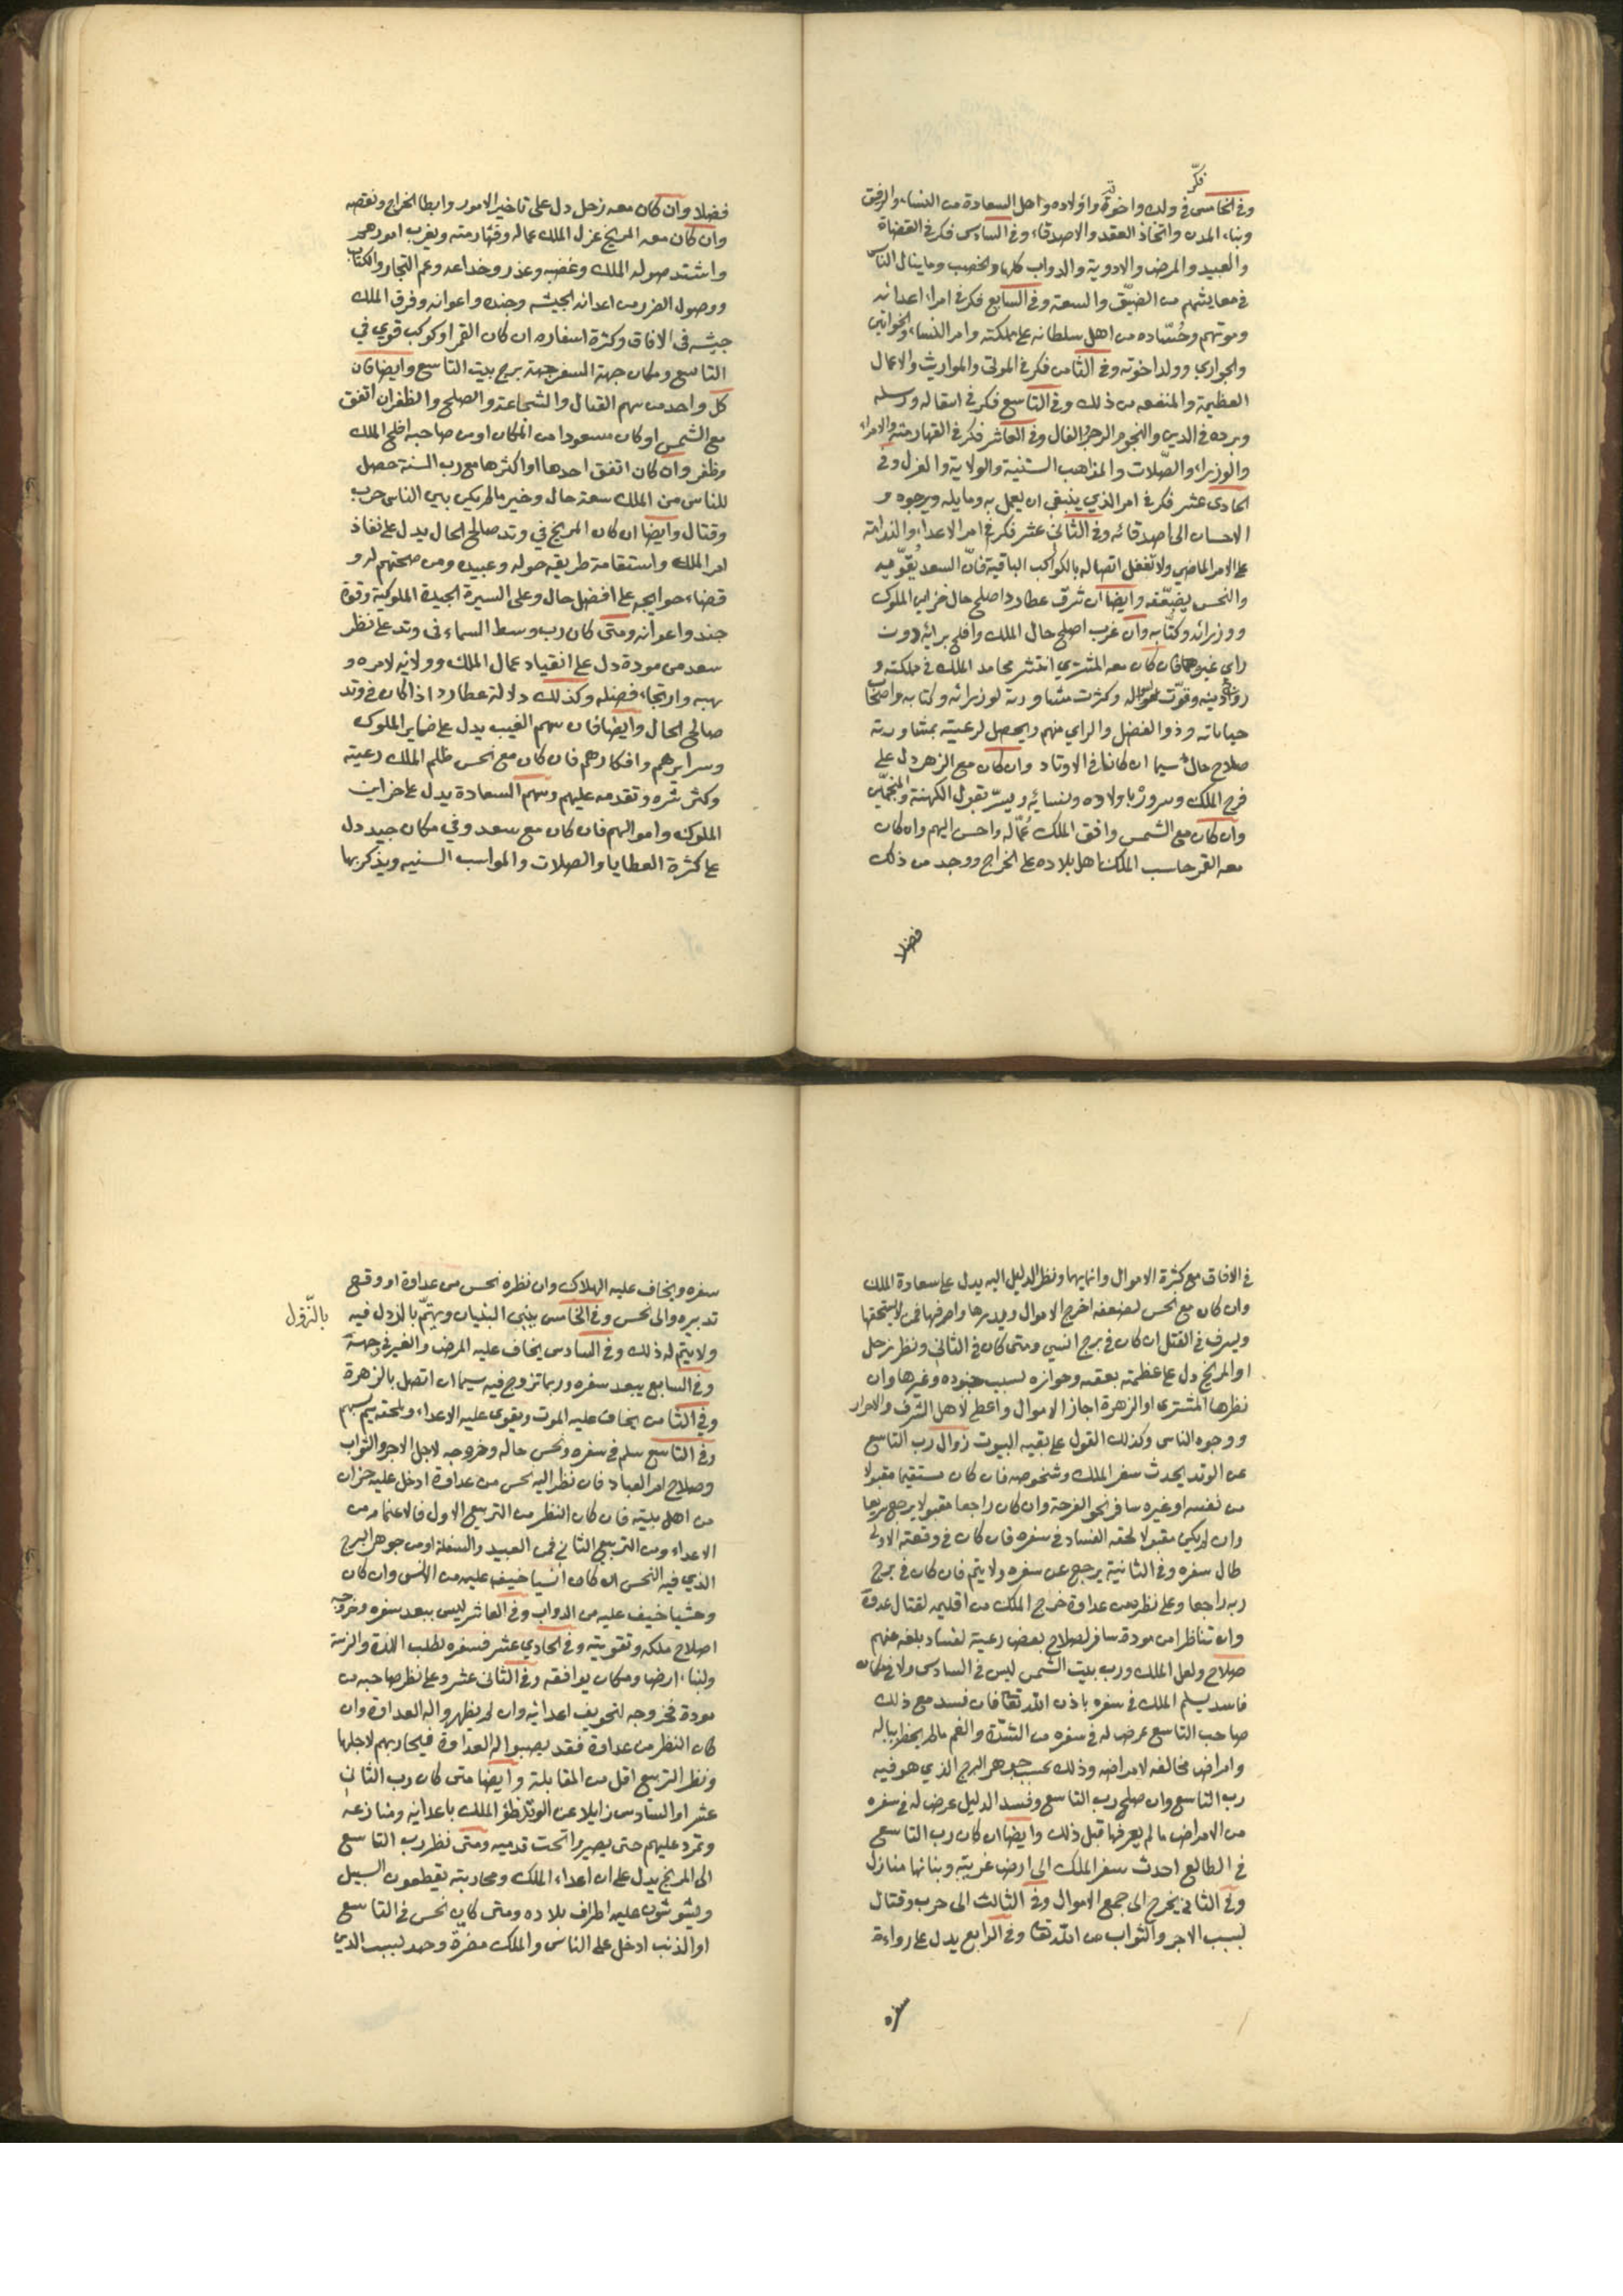 فكّر
وفي الخامس في ولده واخوته واولاده واهل السعادة من النساء والرفيق
وبناء المدن واتخاذ العقد والاصدقاء وفي السادس فكر في القضاة
والعبيد والمرض والادوية والدواب كلها والخصب وما ينال الناس
في معايشهم من الضيّق والسعة وفي السابع فكر في امراء اعدائه
وموتهم وحُسّاده من اهل سلطانه على مملكته وامر النساء والخواتين
والجواري وولد اخوته وفي الثامن فكر في الموتى والمواريث والاعمال
العظيمة والمنفعه من ذلك وفي التاسع فكر في اسفاله ورسله
وبرده في الدين والنجوم الزجر والفال وفي العاشر فكر في القهارمة والامراء
والوزراء والصّلات والمذاهب السّنية والولاية والعزل وفي
الحادى عشر فكر في امر الذي ينبغي ان يعمل به وما يله ويرجوه و
الاحسان الى اصدقائه وفي الثاني عشر فكر في امر الاعداء والندامة
على الامر الماضي ولا تغفل اتصاله بالكواكب الباقية فانّ السعد يقوّيه
والنحس يضعّفه وايضا ان شرّق عطارد اصلح حال خزاين الملوك
ووزرائه وكتّابه وان غرب اصلح حال الملك وافلح برايه دون
راي غيره فان كان معه المشتري انتشر محامد الملك في مملكته و
دينه وقوّت امواله وكثرت مشاورته لوزرائه وكتابه واصحاب
حياماته وذو الفضل والراي منهم ويحصل لرعيته بمشاورته
صلاح حال سيما ان كانا في الاوتاد وان كان مع الزهره دل على
فرح الملك وسروره باولاده ونسائه ويسرّ بقول الكهنة والمنجّمين
وان كان مع الشمس وافق الملك عُمّاله واحسن اليهم وان كان
معه القمر حاسب الملك اهل بلاده على الخراج ووجد من ذلك
فضلا
فضلا وان كان معه زحل دل على تاخير الامور وابطا الخراج ونقصه
وان كان معه المريخ عزل الملك عماله وقهارمته ويغرب امورهم
واشتد صوله الملك وغضبه وعذره وخداعه وعم التجار والكتاب
ووصول الضرر من اعدائه لجيشه وجنده واعوانه وفرق الملك
جيشه في الافاق وكثرة اسفاره ان كان القمر او كوكب قوي في
التاسع ومكان جهة السفر جهة برج بيت التاسع وايضا فان
كل واحد من سهم القتال والشجاعة والصلح والظفر ان اتفق
مع الشمس او كان مسعودا من المكان او من صاحبه افلح الملك
وظفر وان كان اتفق احدها او اكثرها مع رب السنة حصل
للناس من الملك سعة حال وخير ما لم يكن بين الناس حرب
وقتال وايضا ان كان المريخ في وتد صالح الحال يدل على نفاذ
امر الملك واستقامة طريقه حوله وعبيده ومن صحتهم له و
قضاء حوايجه على افضل حال وعلى السيرة الجيدة الملوكية وقوة
جند واعوانه ومتى كان رب وسط السماء في وتد على نظر
سعد من مودة دل على انقياد عمال الملك وولاته لامره و
بهبه وارتجاء فضله وكذلك دلالة عطارد اذا كان في وتد
صالح الحال وايضا فان سهم الغيب يدل على ضماير الملوك
وسرايرهم وافكارهم فان كان مع نحس ظلم الملك رعيته
وكثر شره وتقدمه عليهم وسهم السعادة يدل على خزاين
الملوك واموالهم فان كان مع سعد وفي مكان جيد دل
على كثرة العطايا والصلات والمواهب السنيه ويذكر بها
في الافاق مع كثرة الاموال وانمايها ونظر الدليل اليه يدل على سعادة الملك
وان كان مع نحس لضعفه اخرج الاموال ويدبرها واصرفها فمن لا يستحقها
ويسرف في القتل ان كان في برج انسي ومتى كان في الثاني ونظر زحل
او المريخ دل على عظمته بعقبه وحوازه بسبب جنوده وغيرها وان
نظرها المشترى او الزهرة اجاز الاموال واعطى لاهل الشرف والاحرار
ووجوه الناس وكذلك القول على بقيه البيوت زوال رب التاسع
عن الوتد يحدث سفر الملك وشخوصه فان كان مستقيما مقبولا
من نفسه او غيره سافر نحو الفرحة وان كان راجعا مقبولا يرجع سريعا
وان لم يكن مقبولا لحقه الفساد في سفره فان كان في وقعته الاولى
طال سفره وفي الثانية يرجع عن سفره ولا يتم فان كان في برج
ربه راجعا وعلى نظر من عداوة خرج الملك من اقليمه لقتال عدوه
وان تناظرا من مودة سافر لصلاح بعض رعية لفساد بلغه عنهم
صلاح ولعل الملك ورب بيت الشمس ليس في السادس ولا في مكان
فاسد يسلم الملك في سفره باذن الله تعا فان فسد مع ذلك
صاحب التاسع عرض له في سفره من الشدّة والغم ما لم يخطر بباله
وامراض مخالفه لامراضه وذلك بحسب جوهر البرج الذي هو فيه
رب التاسع وان صلح رب التاسع وفسد الدليل عرض له في سفره
من الامراض ما لم يعرفها قبل ذلك وايضا ان كان رب التاسع
في الطالع احدث سفر الملك الى ارض غريبة وبنائها منازل
وفي الثاني يخرج الى جمع الاموال وفي الثالث الى حرب وقتال
لسبب الاجر والثواب من الله تعا وفي الرابع يدل على رداءة
سفره
سفره ويخاف عليه الهلاك وان نظره نحس من عداوة او وقع
تدبيره والى نحس وفي الخامس يبني البنيان ويهتمّ بالزول فيه
بالنّزول
ولا يتم له ذلك وفي السادس يخاف عليه المرض والغير في وجهه
وفي السابع يبعد سفره وربما تزوج فيه سيما ان اتصل بالزهرة
وفي الثامن يخاف عليه الموت ويقوى عليه الاعداء ويلحقه
وفي التاسع سلم في سفره وتحسن حاله وخروجه لاجل الاجر والثواب
وصلاح امر العباد فان نظر اليه نحس من عداوة ادخل عليه حزن
من اهل بيته فان كان النظر من التربيع الاول فالاغتمام من
الاعداء ومن التربيع الثاني فمن العبيد والسفلة او من جوهر البرج
الذي فيه النحس ان كان انسيا خيف عليه من الانس وان كان
وحشيا خيف عليه من الدواب وفي العاشر ليس يبعد سفره وخروجه
اصلاح ملكه وتقويته وفي الحادي عشر فسفره لطلب اللذة والنزهة
ولبناء ارض ومكان يوافقه وفي الثاني عشر وعلى نظر صاحبه من
مودة فخروجه لتخويف اعدائه وان لم يظهروا له العداوة وان
كان النظر من عداوة فقد يصبوا له العداوة فيحاربهم لاجلها
ونظر التربيع اقل من المقابلة وايضا متى كان رب الثاني
عشر او السادس زايلا عن الوتد ظفر الملك باعدائه ومنازعه
وتمرد عليهم حتى يصيروا تحت قدميه ومتى نظر رب التاسع
الى المريخ يدل على ان اعداء الملك ومحاربته يقطعون السبيل
ويشوشون عليه اطراف بلاده ومتى كان نحس في التاسع
او الذنب ادخل على الناس والملك مضرة وجهد لسبب الدين